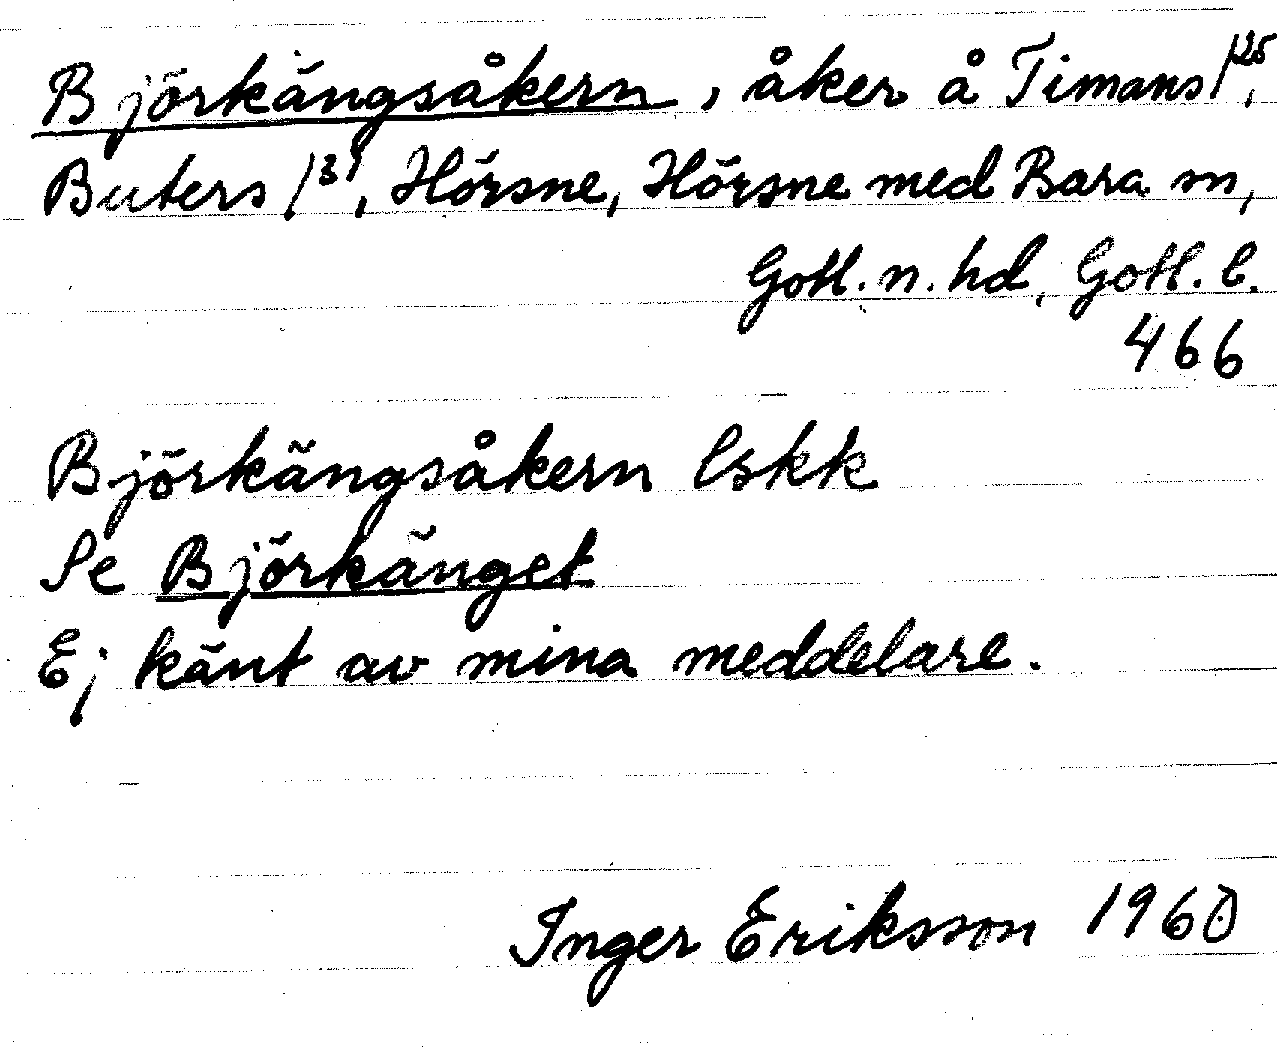 Björkängsåkern, åker å Timans 1²⁵,
Buters 1³⁾, Hörsne, Hörsne med Bara sn,
Gotl. n. hd, Gotl. l.
466
Björkängsåkern Eskk
Se Björkänget
Ej känt av mina meddelare.
Inger Eriksson 1960